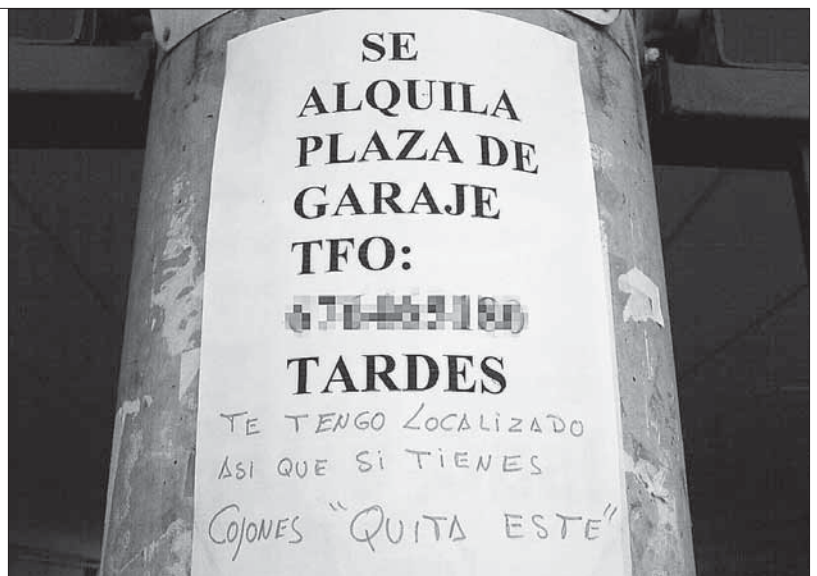 SE
ALQUILA
PLAZA DE
GARAJE
TFO:
TARDES
TE TENGO LOCALIZADO
ASI QUE SI TIENES
COJONES "QUITA ESTE"